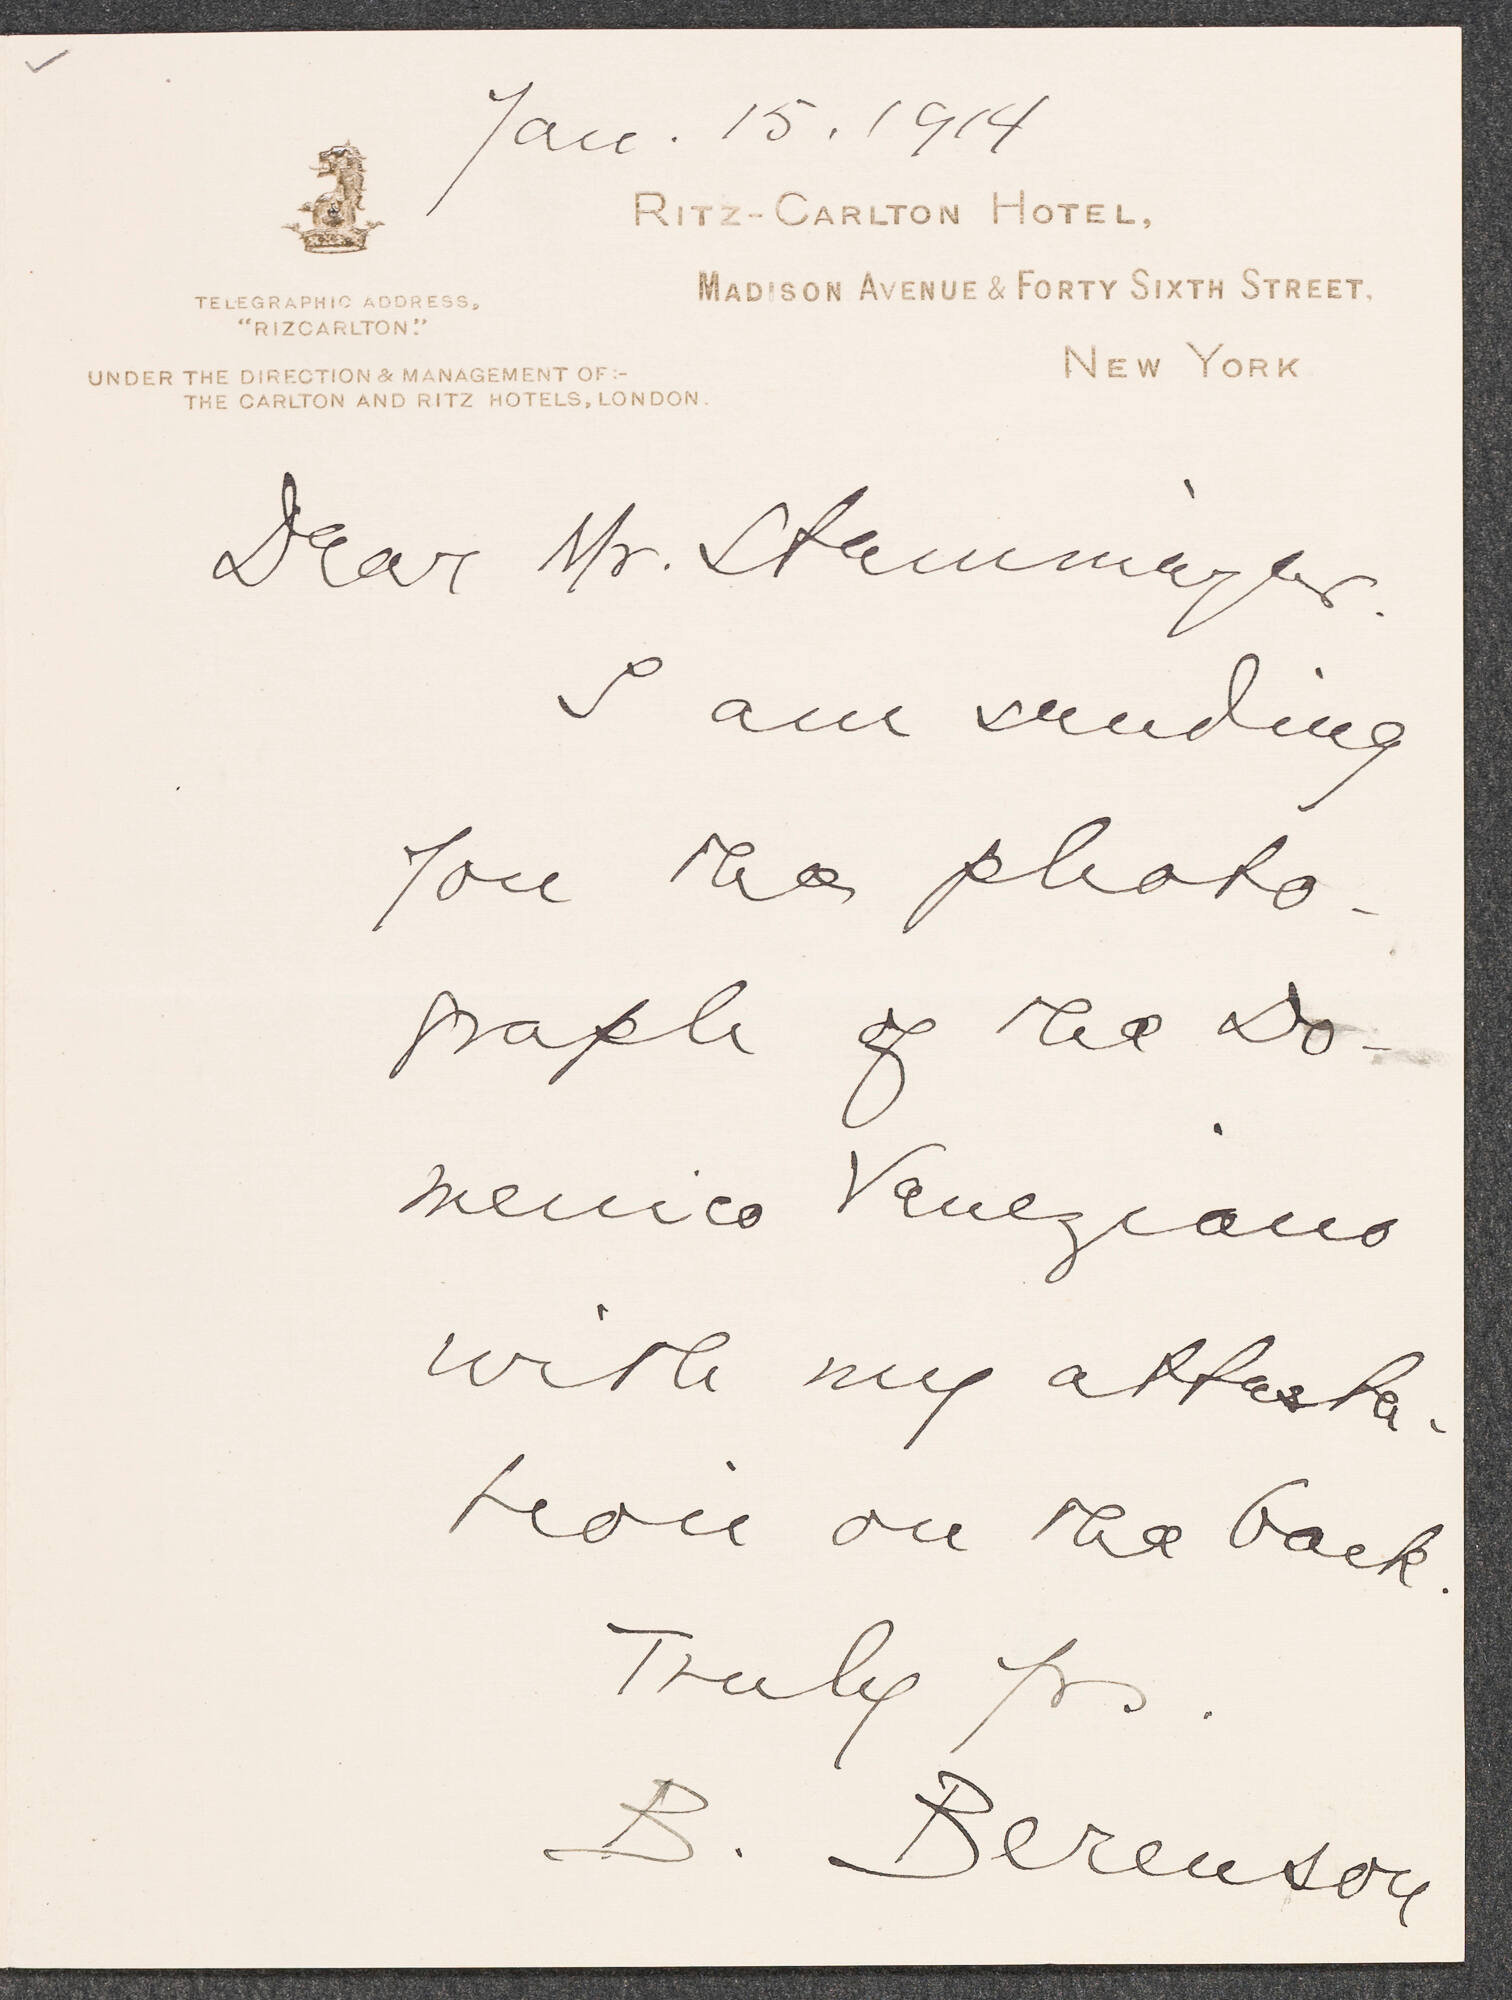 Jan. 15. 1914
RITZ-CARLTON HOTEL,
MADISON AVENUE & FORTY SIXTH STREET,
NEW YORK
TELEGRAPHIC ADDRESS,
"RIZCARLTON."
UNDER THE DIRECTION & MANAGEMENT OF:-
THE CARLTON AND RITZ HOTELS, LONDON.
Dear Mr.
I am sending
you the photo-
graph of the Do-
menico Veneziano
with my attesta-
tion on the back.
Truly yrs.
B. Berenson